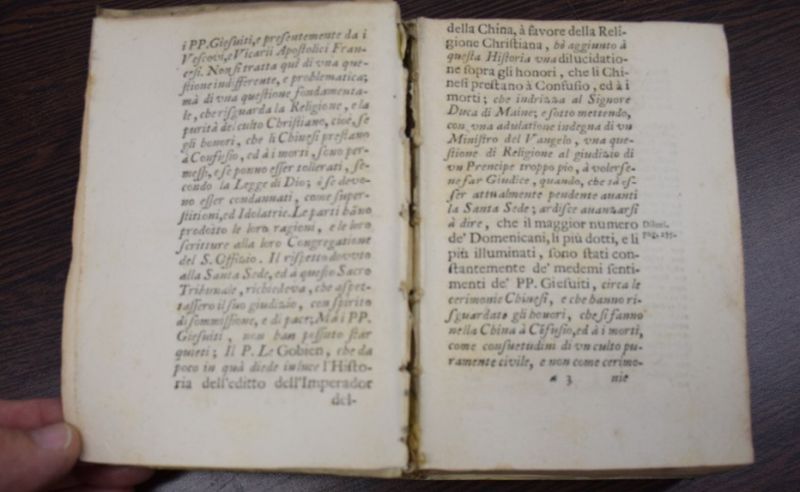 i PP. Giesuiti, e presentemente da i
Vescovi, e Vicarii Apostolici Fran-
cesi. Non si tratta quì di vna que-
stione indifferente, e problematica;
mà di vna questione fondamenta-
le, che risguarda la Religione, e la
purità del culto Christiano, cioè, se
gli honori, che li Chinesi prestano
à Confusio, ed à i morti, sono per-
messi, e se ponno esser tollerati, se-
condo la Legge di Dio; ò se devo-
no esser condannati, come super-
stitioni, ed Idolatrie. Le parti hãno
prodotto le loro ragioni, e le loro
scritture alla loro Congregatione
del S. Offizio. Il rispetto dovuto
alla Santa Sede, ed à questo Sacro
Tribunale, richiedeva, che aspet-
tassero il suo giudizio, con spirito
di sommissione, e di pace; Mà i PP.
Giesuiti, non han possuto star
quieti; Il P. Le Gobien, che da
poco in quà diede in luce l'Histo-
ria dell'editto dell'Imperador
del-
della China, à favore della Reli-
gione Christiana, hà aggiunto à
questa Historia vna dilucidatio-
ne sopra gli honori, che li Chi-
nesi prestano à Confusio, ed à i
morti; che indrizza al Signore
Duca di Maine; e sotto mettendo,
con vna adulatione indegna di vn
Ministro del Vangelo, vna que-
stione di Religione al giudizio di
vn Prencipe troppo pio, à volerse-
ne far Giudice, quando, che sà es-
ser attualmente pendente auanti
la Santa Sede; ardisce auanzarsi
à dire, che il maggior numero
de' Domenicani, li più dotti, e li
più illuminati, sono stati con-
stantemente de' medemi senti-
menti de' PP. Giesuiti, circa le
cerimonie Chinesi, e che hanno ri-
sguardato gli honori, che si fanno
nella China à Cõfusio, ed à i morti,
come consuetudini di vn culto pu-
ramente civile, e non come cerimo-
a 3 nie
pag. 235.